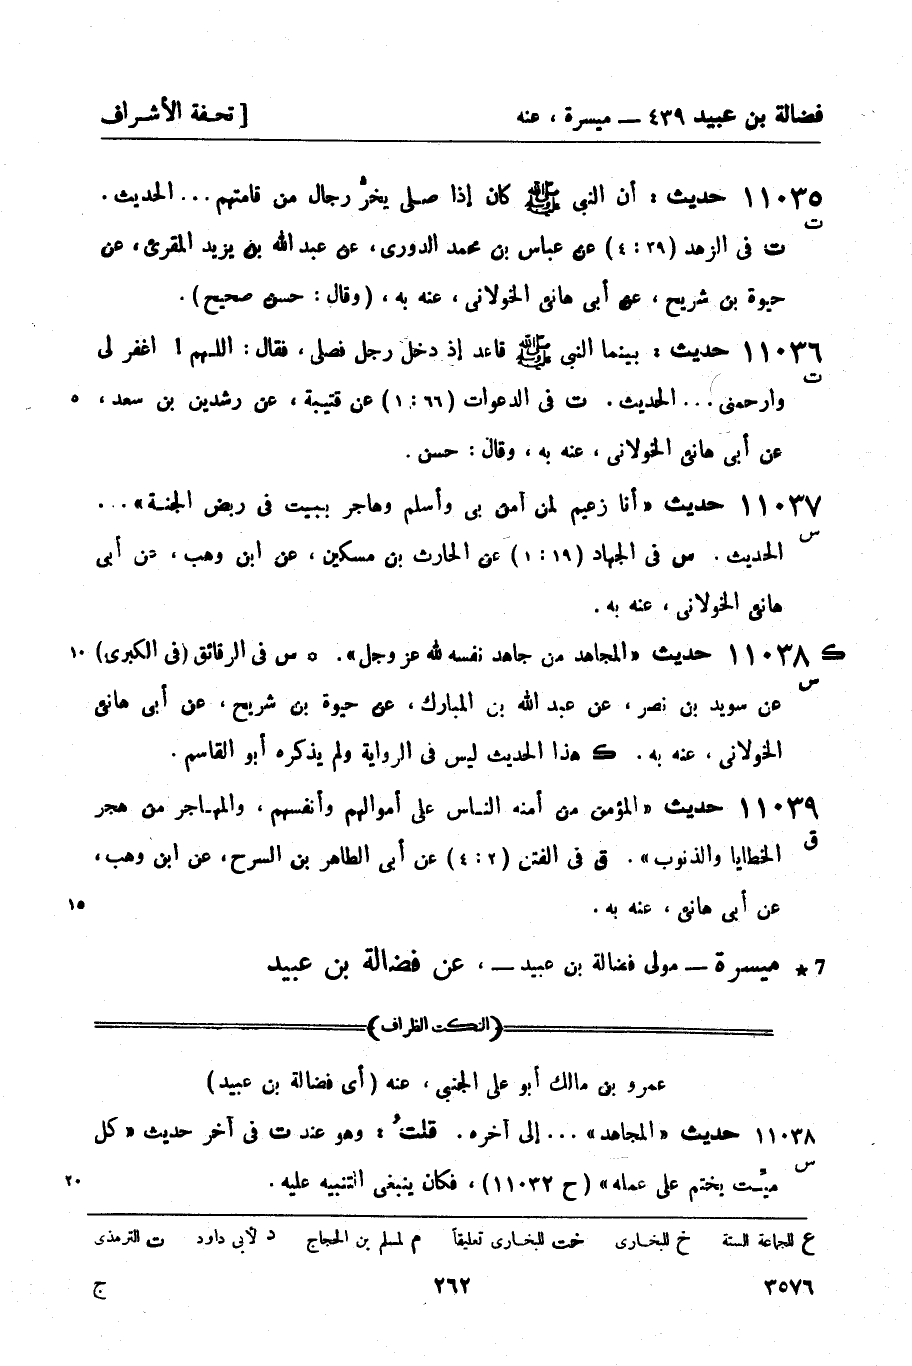 فضالة بن عبيد ٤٣٩ — ميسرة ، عنه [ تحفة الأشراف
١١٠٣٥ حديث : أن النبى ﷺ كان إذا صلى يخرُّ رجال من قامتهم ... الحديث .
ت
ت فى الزهد (٣٩ : ٤) عن عباس بن محمد الدورى ، عن عبد الله بن يزيد المقرئ ، عن
حيوة بن شريح ، عن أبى هانئ الخولانى ، عنه به ، (وقال : حسن صحيح) .
١١٠٣٦ حديث : بينما النبى ﷺ قاعد إذ دخل رجل فصلى ، فقال : اللهم ! اغفر لى
ت
وارحمنى ... الحديث . ت فى الدعوات (٦٦ : ١) عن قتيبة ، عن رشدين بن سعد ، ٥
عن أبى هانئ الخولانى ، عنه به ، وقال : حسن .
١١٠٣٧ حديث «أنا زعيم لمن آمن بى وأسلم وهاجر ببيت فى ربض الجنة» ...
س
الحديث . س فى الجهاد (١٩ : ١) عن الحارث بن مسكين ، عن ابن وهب ، عن أبى
هانئ الخولانى ، عنه به .
ك ١١٠٣٨ حديث «المجاهد من جاهد نفسه لله عز وجل» . ه س فى الرقائق (فى الكبرى) ١٠
س
عن سويد بن نصر ، عن عبد الله بن المبارك ، عن حيوة بن شريح ، عن أبى هانئ
الخولانى ، عنه به . ك هذا الحديث ليس فى الرواية ولم يذكره أبو القاسم .
١١٠٣٩ حديث «المؤمن من أمنه الناس على أموالهم وأنفسهم ، والمهاجر من هجر
ق
الخطايا والذنوب» . ق فى الفتن (٢ : ٤) عن أبى الطاهر بن السرح ، عن ابن وهب ،
عن أبى هانئ ، عنه به . ١٥
7 * ميسرة — مولى فضالة بن عبيد — ، عن فضالة بن عبيد
(النكت الظراف)
عمرو بن مالك أبو على الجنبى ، عنه (أى فضالة بن عبيد)
١١٠٣٨ حديث «المجاهد» ... إلى آخره . قلتُ : وهو عند ت فى آخر حديث «كل
س
ميّت يختم على عمله» (ح ١١٠٣٢) ، فكان ينبغى التنبيه عليه . ٢٠
ع للجماعة الستة خ للبخارى خت للبخارى تعليقاً م لمسلم بن الحجاج د لأبى داود ت الترمذى
٣٥٧٦ ٢٦٢ ج